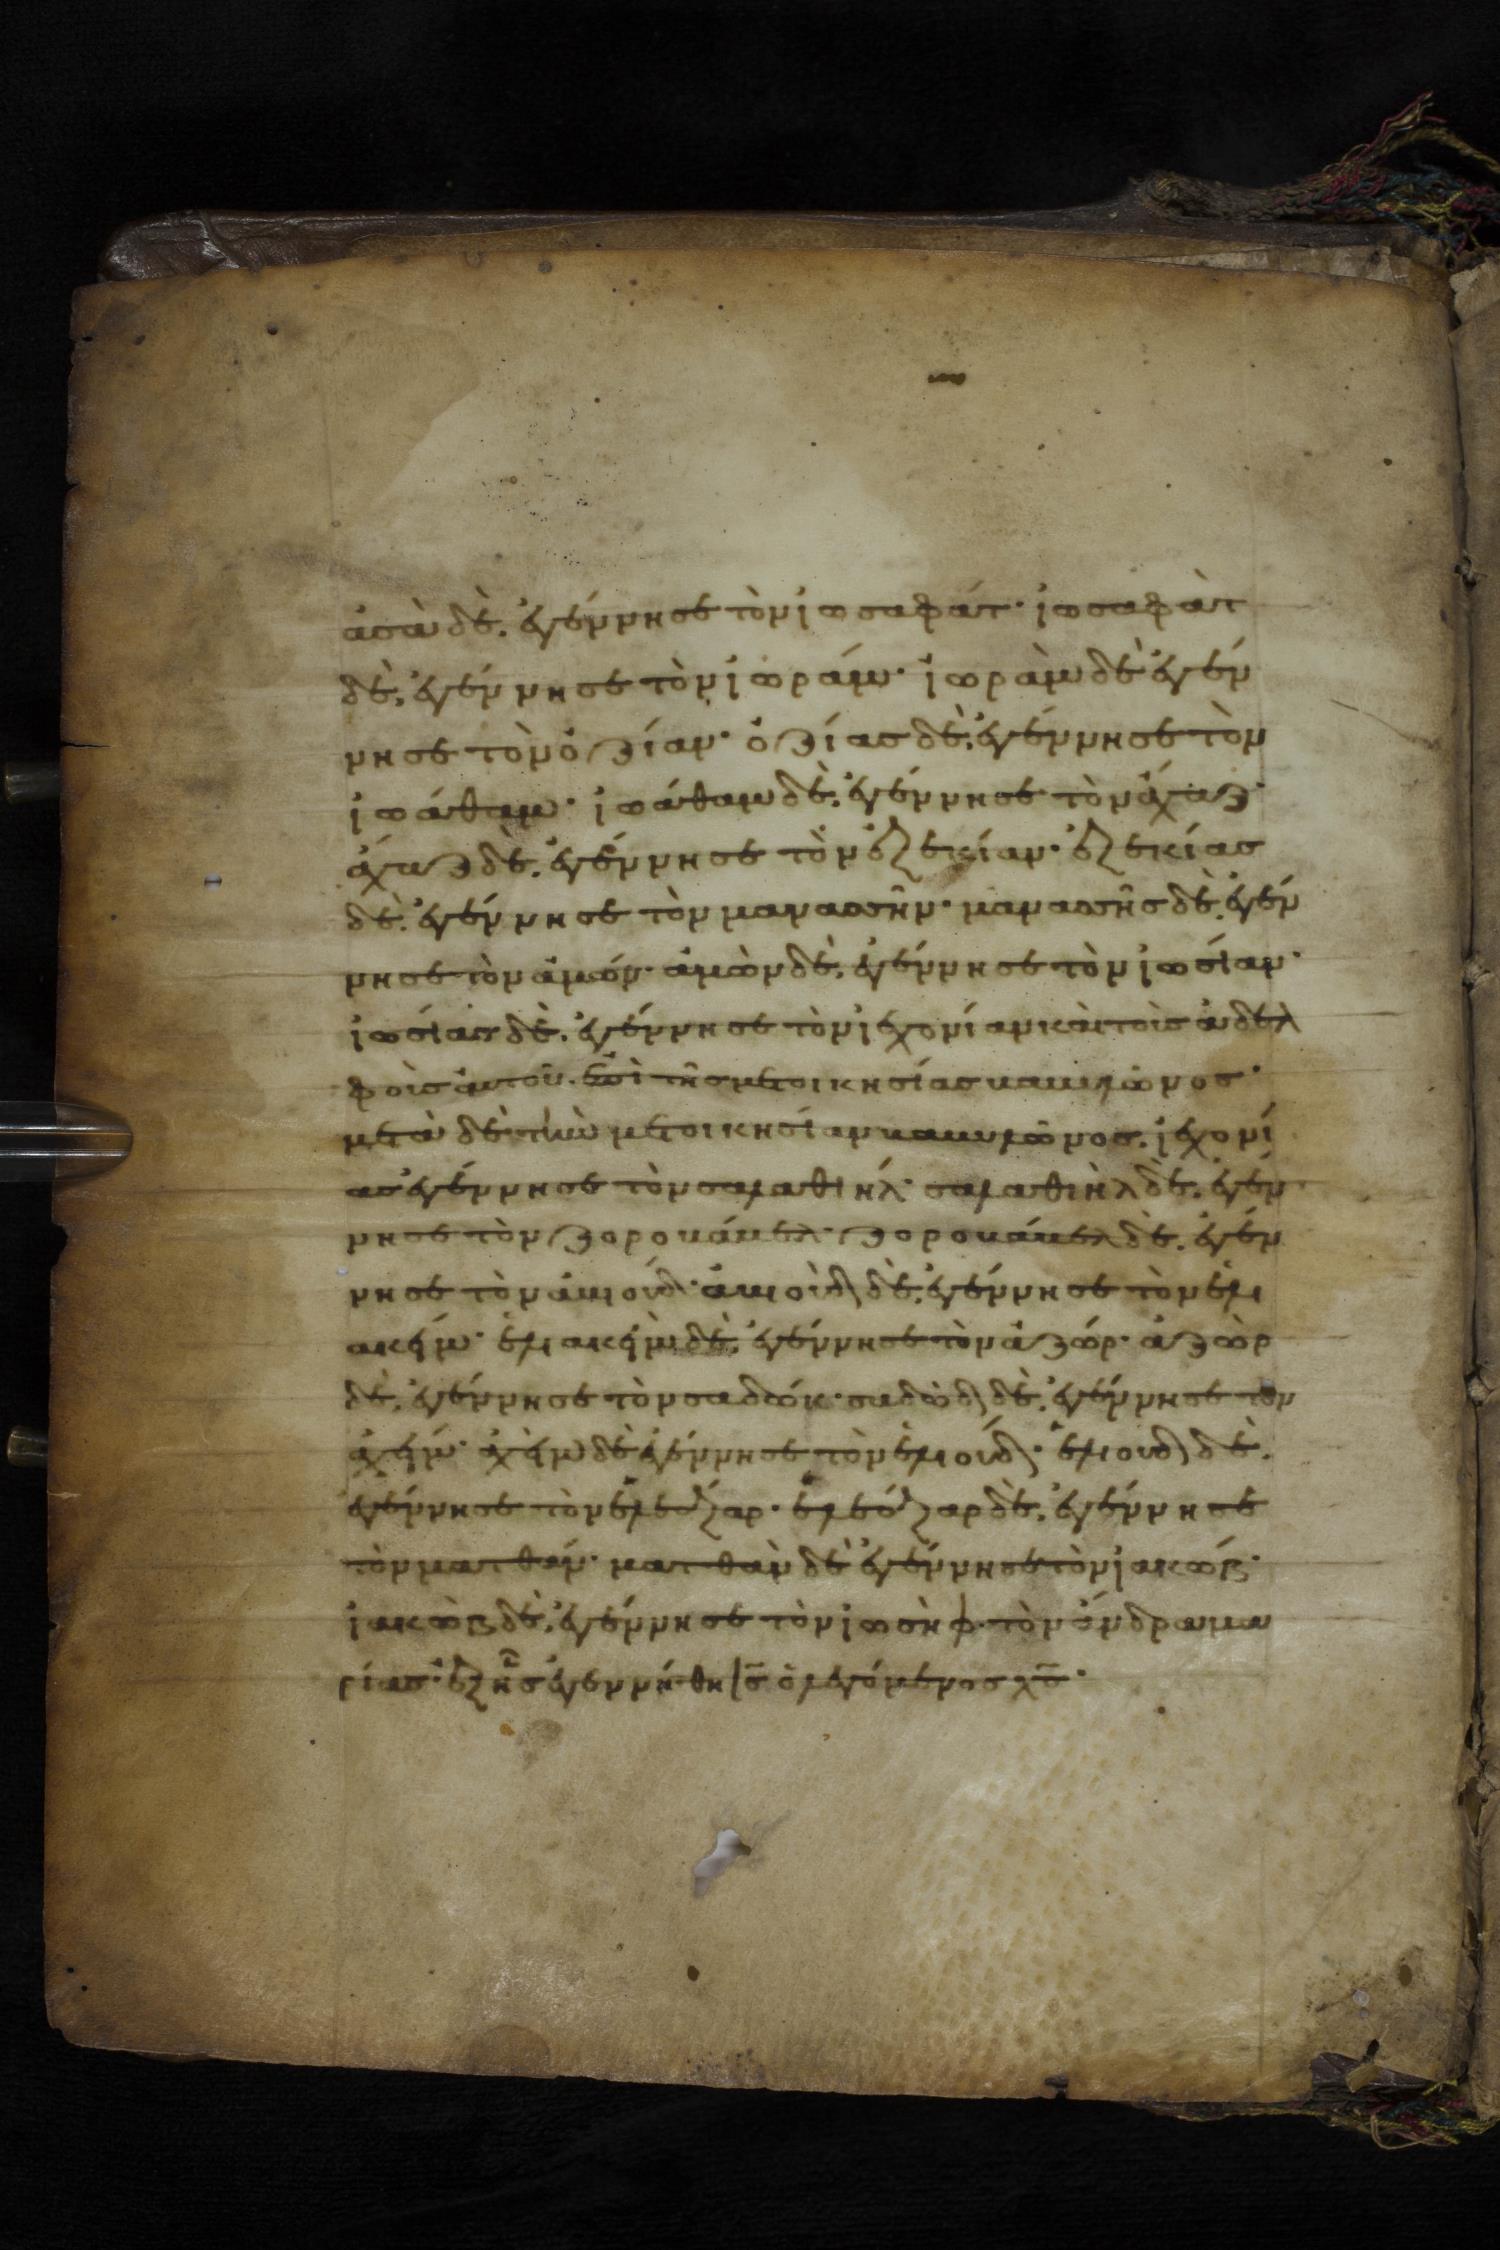 ἀσὰ δὲ. ἐγέννησε τὸν ἰωσαφάτ· ἰωσαφὰτ
δὲ. ἐγέννησε τὸν ἰωράμ· ἰωρὰμ δὲ ἐγέν
νησε τὸν ὀζίαν· ὀζίας δὲ. ἐγέννησε τὸν
ἰωάθαμ· ἰωάθαμ δὲ. ἐγέννησε τὸν ἄχαζ·
ἄχαζ δὲ. ἐγέννησε τὸν ἐζεκίαν· ἐζεκίας
δὲ. ἐγέννησε τὸν μανασσῆν· μανασσῆς δὲ. ἐγέν
νησε τὸν ἀμών· ἀμὼν δὲ. ἐγέννησε τὸν ἰωσίαν·
ἰωσίας δὲ. ἐγέννησε τὸν ἰεχονίαν καὶ τοὺς ἀδελ
φοὺς αὐτοῦ. ἐπὶ τῆς μετοικησίας βαβυλῶνος·
μετὰ δὲ τὴν μετοικησίαν βαβυλῶνος. ἰεχονί
ας ἐγέννησε τὸν σαλαθιήλ· σαλαθιὴλ δὲ. ἐγέν
νησε τὸν ζοροβάβελ· ζοροβάβελ δὲ. ἐγέν
νησε τὸν ἀβιούδ· ἀβιοὺδ δὲ. ἐγέννησε τὸν ἐλι
ακείμ· ἐλιακεὶμ δὲ. ἐγέννησε τὸν ἀζώρ· ἀζὼρ
δὲ. ἐγέννησε τὸν σαδώκ· σαδὼδ δὲ. ἐγέννησε τὸν
ἀχείμ· ἀχεὶμ δὲ ἐγέννησε τὸν ἐλιούδ· ἐλιουδ δὲ.
ἐγέννησε τὸν ἐλεάζαρ· ἐλεάζαρ δὲ. ἐγέννησε
τὸν ματθάν· ματθὰν δὲ ἐγέννησε τὸν ἰακώβ·
ἰακὼβ δὲ. ἐγέννησε τὸν ἰωσὴφ. τὸν ἄνδρα μα
ρίας· ἐξ ἧς ἐγεννήθη ις̅ ὁ λεγόμενος χς̅·